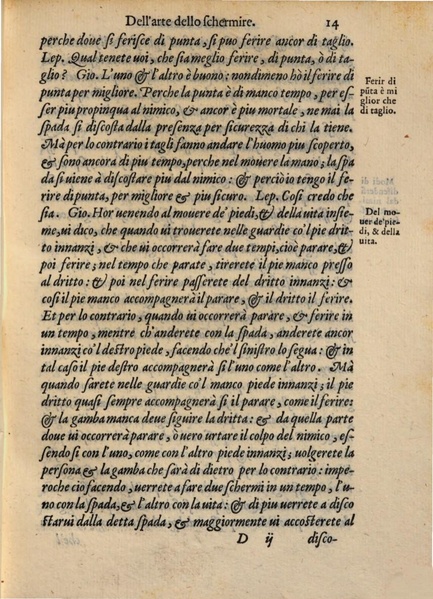 Dell'arte dello schermire. 14
perche doue si ferisce di punta, si puo ferire ancor di taglio.
Lep. Qual tenete uoi, che sia meglio ferire, di punta, ò di ta-
glio? Gio. L'uno & l'altro è buono: nondimeno hò il ferire di
punta per migliore. Perche la punta è di manco tempo, per es-
ser piu propinqua al nimico, & ancor è piu mortale, ne mai la
spada si discosta dalla presenza per sicurezza di chi la tiene.
Mà per lo contrario i tagli fanno andare l'huomo piu scoperto,
& sono ancora di piu tempo, perche nel mouere la mano; la spa
da si uiene à discostare piu dal nimico: & perciò io tengo il fe-
rire di punta, per migliore & piu sicuro. Lep. Cosi credo che
sia. Gio. Hor uenendo al mouere de' piedi, & della uita insie-
me, ui dico, che quando ui trouerete nelle guardie co'l pie drit
to innanzi, & che ui occorrerà fare due tempi, cioè parare, &
poi ferire; nel tempo che parate, tirerete il pie manco presso
al dritto: & poi nel ferire passerete del dritto innanzi: &
cosi il pie manco accompagnerà il parare, & il dritto il ferire.
Et per lo contrario, quando ui occorrerà parare, & ferire in
un tempo, mentre ch'anderete con la spada, anderete ancor
innanzi co'l destro piede, facendo che'l sinistro lo segua: & in
tal caso il pie destro accompagnerà si l'uno come l'altro. Mà
quando sarete nelle guardie co'l manco piede innanzi; il pie
dritto quasi sempre accompagnerà si il parare, come il ferire:
& la gamba manca deue siguire la dritta: & da quella parte
doue ui occorrerà parare, ò uero urtare il colpo del nimico, es-
sendo si con l'uno, come con l'altro piede innanzi; uolgerete la
persona & la gamba che sarà di dietro per lo contrario: impe-
roche cio facendo, uerrete a fare due schermi in un tempo, l'u-
no con la spada, & l'altro con la uita: & di piu uerrete a disco
starui dalla detta spada, & maggiormente ui accosterete al
D ij disco-
Ferir di
pūta è mi
glior che
di taglio.
Del mo-
uer de' pie-
di, & della
uita.